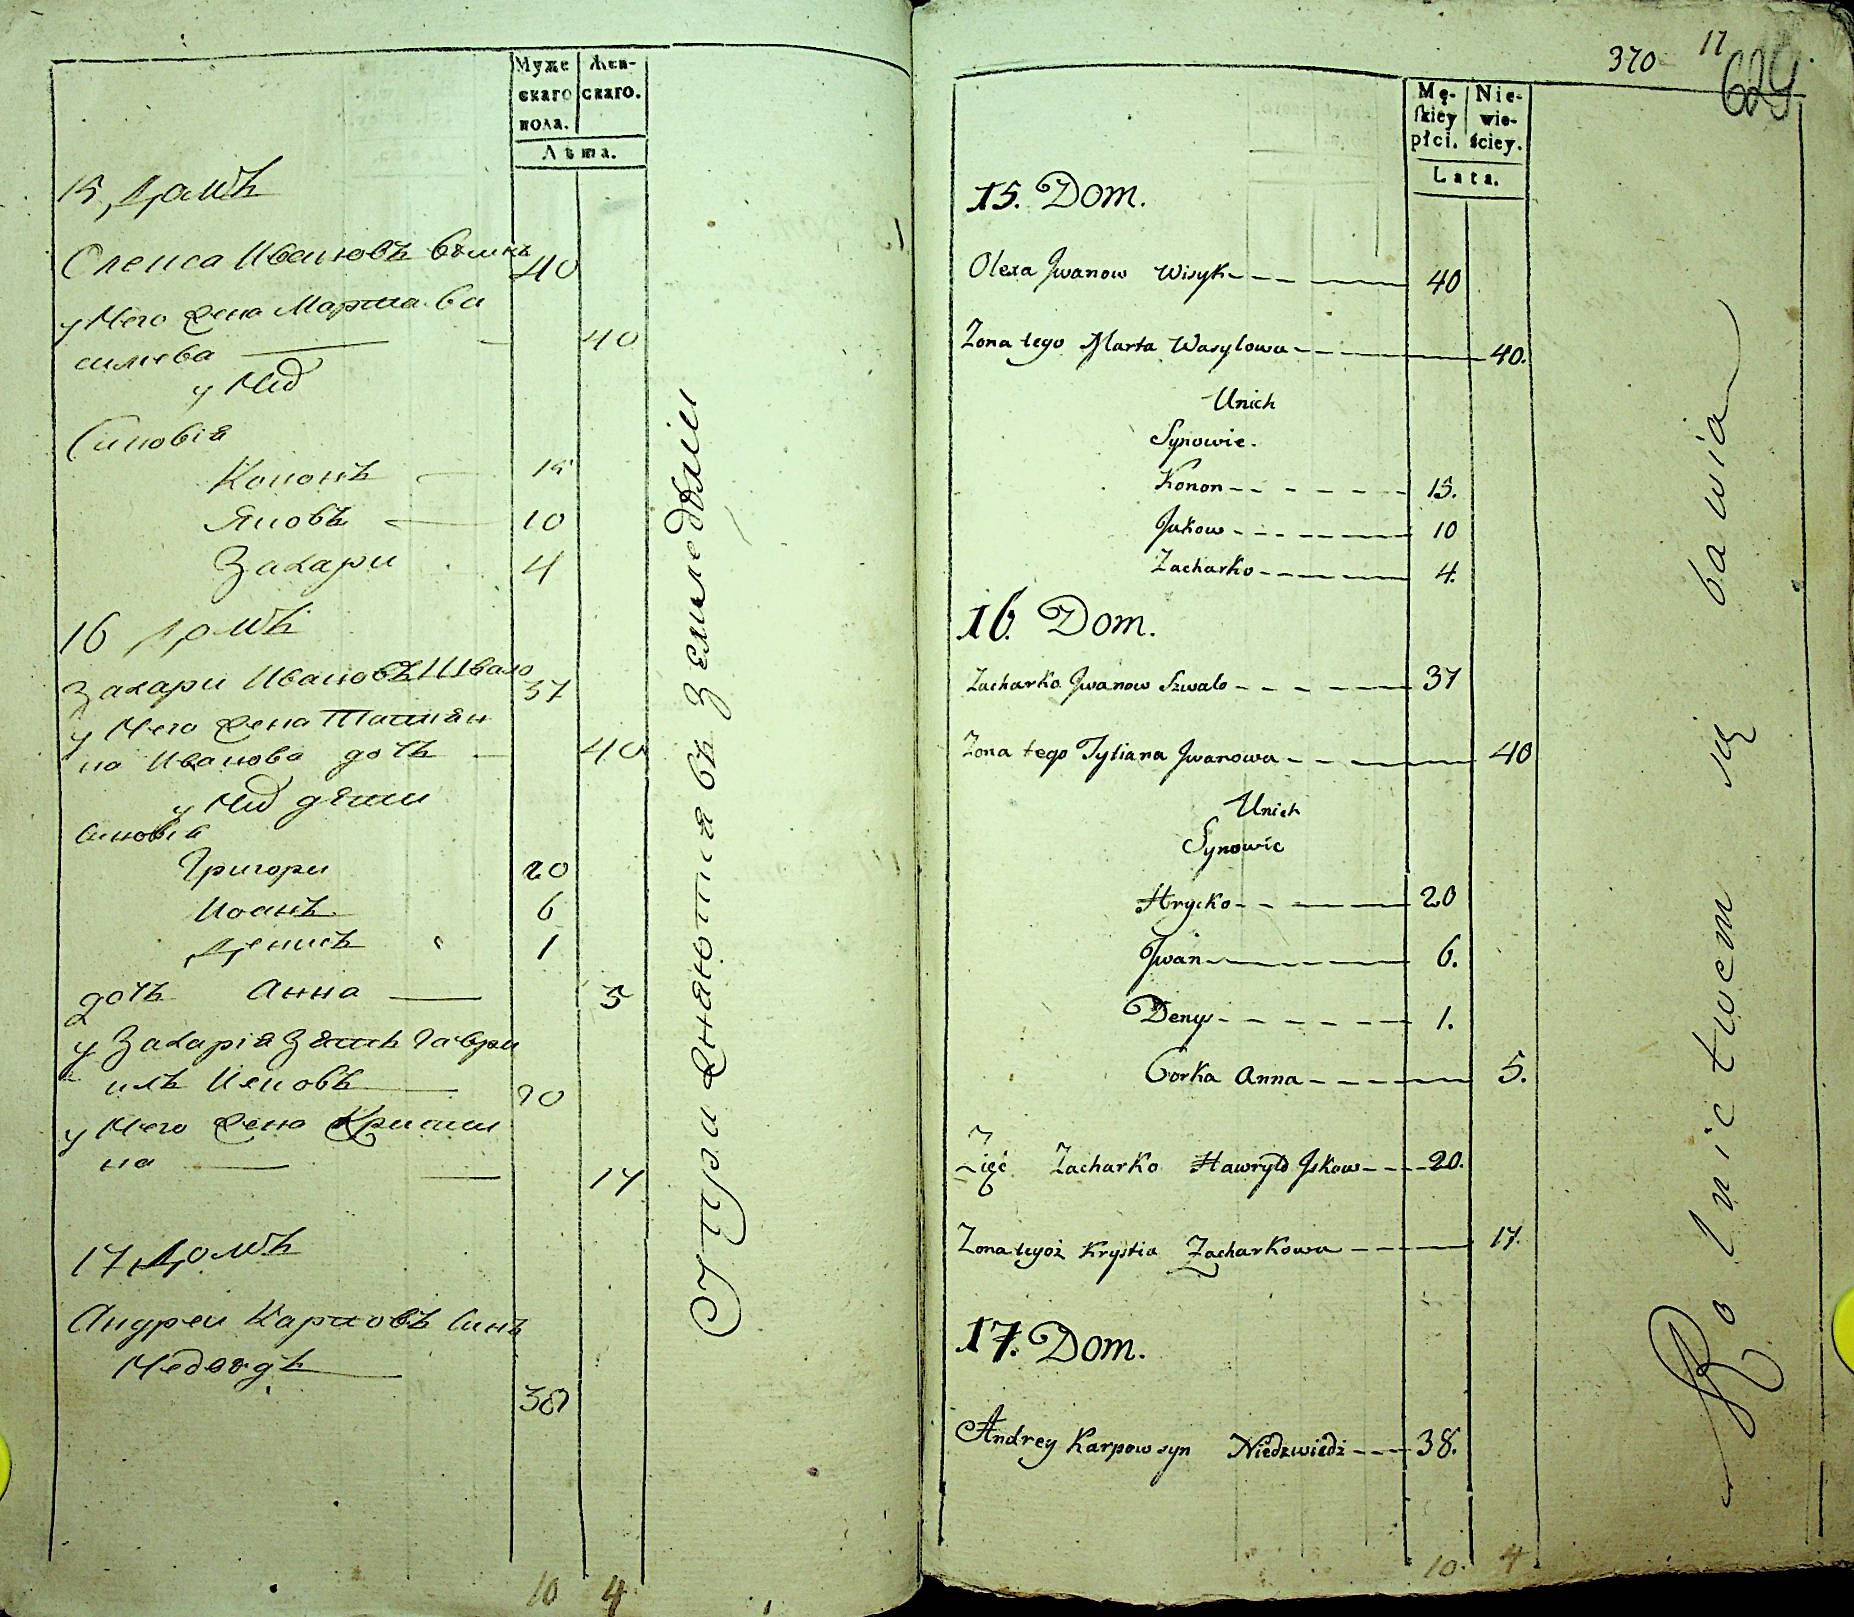 Муже Жен-
скаго скаго.
пола.
Лѣта.
15 Домъ
Олекса Ивановъ 40
у Него жена Марта Ва
силиева 40
у Них
Синовія
Кононъ 15
Яковъ 10
Захари 4
16 Домъ
Захари Ивановъ Швало 37
у Него жена Татиян
на Иванова дочъ 40
у Них дѣти
синовія
Григори 20
Иоанъ 6
Денисъ 1
дочъ Анна 5
у Захарія Зять Гаври
илъ 20
у Него жена Кристи
на 17
17 Домъ
Андреи Карповъ Синъ
Медведъ
38
10 4
Упражнаются въ Земледѣліи
370 17
629
Mę- Nie-
skiey wie-
płci. ściey.
Lata.
15. Dom.
Olexa Jwanow Wisyk 40
Zona tego Marta Wasylowa 40.
Unich
Synowie.
Konon 15.
Jakow 10
Zacharko 4.
16. Dom.
Zacharko Jwanow Szwalo 37
Zona tego Tytiana Jwanowa 40
Unich
Synowie
Hrycko 20
Jwan 6.
Denys 1.
Corka Anna 5.
Zięć Zacharko Hawryło Jskow 20.
Zona tegoż Krystia Zacharkowa 17.
17. Dom.
Andrey Karpow syn Niedzwiedz 38.
10. 4
Rolnictwem się bawia